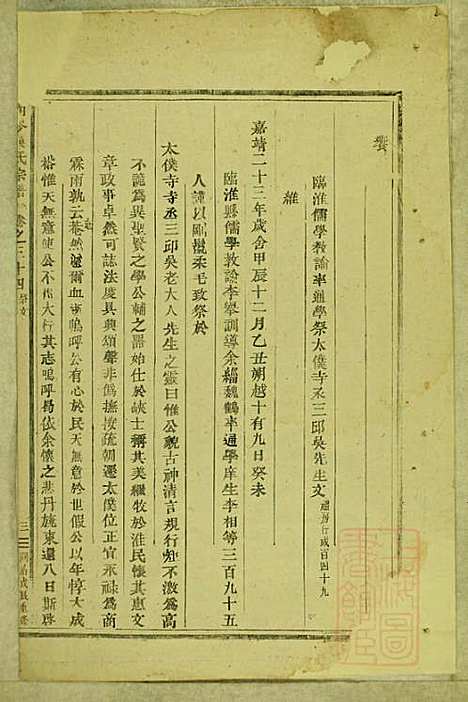 饗
臨淮儒學教諭率通學祭太僕寺丞三邱吳先生文
維
嘉靖二十三年歲舍甲辰十二月乙丑朔越十有九日癸未
臨淮縣儒學教諭李舉訓導余福魏鶴率通學庠生李相等三百九十五
人謹以剛鬣柔毛致祭於
太僕寺寺丞三邱吳老大人先生之靈曰惟公貌古神清言規行矩不激為高
不詭為異聖賢之學公輔之器始仕於峽士稱其美繼牧於淮民懷其惠文
章政事卓然可誌法慶具興頌聲非偽撫按疏朝遷太僕位正宜永祿為商
霖雨孰云菴然邇爾血事嗚呼公有心於民天無意於世假公以年惇大成
裕惟天無意使公不大行其志嗚呼曷依余懷之悲丹旐東還八日斯啓
氏宗譜 卷之三十四 祭文
三